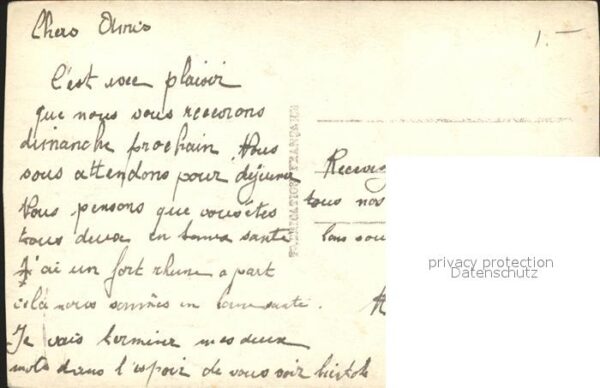 Chers Amis
1.-
C'est avec plaisir
que nous vous recevrons
dimanche prochain. Nous
vous attendons pour déjeuner
Nous pensons que vous êtes
tous deux en bonne santé
J'ai un fort rhume a part
cela nous sommes en bonne santé.
Je vais terminer mes deux
mots dans l'espoir de vous voir bientôt
FABRICATION FRANÇAISE
Recevez
tous nos
privacy protection
Datenschutz